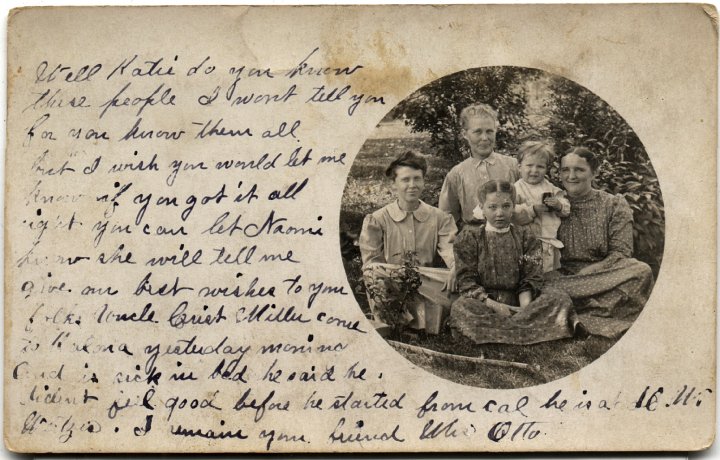 Well Katie do you know
these people I wont tell you
for you know them all
but I wish you would let me
know if you got it all
right you can let Naomi
know she will tell me
give our best wishes to you
folks Uncle Crist Miller come
to Kalona yesterday morning
and is sick in bed he said he
dident feel good before he started from cal he is at
I remain your friend Otto